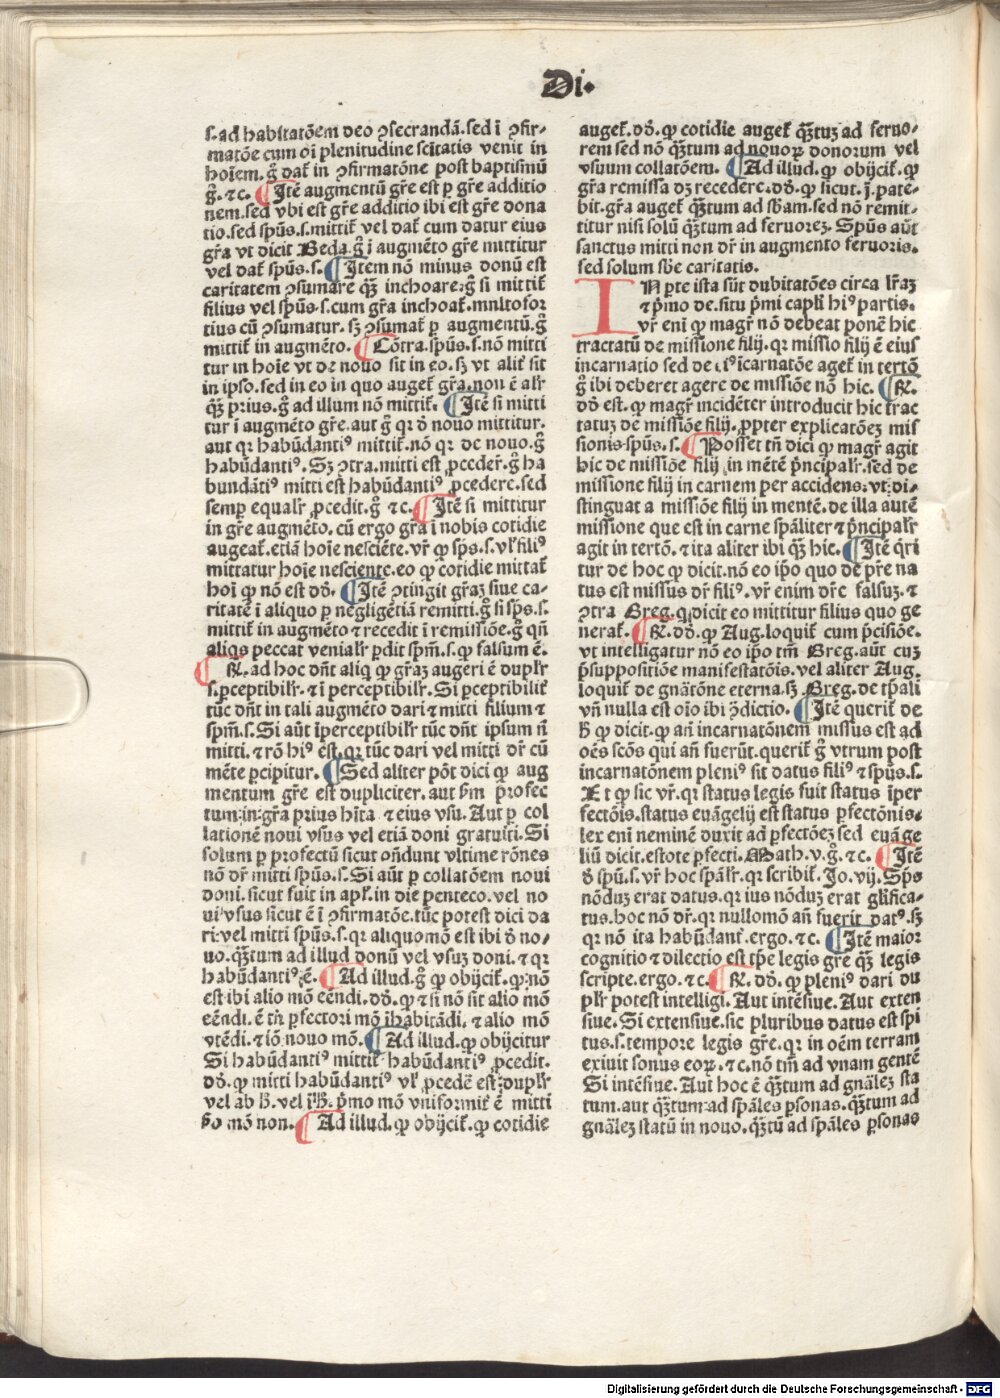 Di.
s. ad habitatōem deo ꝯsecrandā. sed ī ꝯfir-
matōe cum oī plenitudine scitatis venit in
hoīem. g̊ daꝉ in ꝯfirmatōne post baptismū
g̊. ⁊c. ¶ Itē augmentū gr̄e est ꝑ gr̄e additio
nem. sed vbi est gr̄e additio ibi est gr̄e dona
tio. sed spūs. s. mittiꝉ vel daꝉ cum datur eius
gr̄a vt dicit Beda. g̊ ī augmēto gr̄e mittitur
vel daꝉ spūs. s. ¶ Item nō minus donū est
caritatem ꝯsumare qȝ̄ inchoare. g̊ si mittiꝉ
filius vel spūs. s. cum gr̄a inchoaꝉ. mnltofor
tius cū ꝯsumatur. sȝ ꝯsumaꝉ ꝑ augmentū. g̊
mittiꝉ in augmēto. ¶ Cōtra. spūs. s. nō mitti
tur in hoīe vt de nouo sit in eo. sȝ vt aliꝉ sit
in ipso. sed in eo in quo augeꝉ gr̄a. non ē alr̄
qȝ̄ prius. g̊ ad illum nō mittiꝉ. ¶ Itē si mitti
tur ī augmēto gr̄e. aut g̊ qr d̄ nouo mittitur.
aut qr habūdantiꝰ mittiꝉ. nō qr de nouo. g̊
habūdantiꝰ. Sȝ ꝯtra. mitti est ꝓceder̄. g̊ ha
bundātiꝰ mitti est habūdantiꝰ ꝓcedere. sed
semꝑ equalr̄ ꝓcedit. g̊ ⁊c. ¶ Itē si mittitur
in gr̄e augmēto. cū ergo gr̄a ī nobis cotidie
augeaꝉ. etiā hoīe nesciēte. vr̄ ꝙ sp̄s. s. vꝉ filiꝰ
mittatur hoīe nesciente. eo ꝙ cotidie mittaꝉ
hoī ꝙ nō est dō. ¶ Itē ꝯtingit gr̄aȝ siue ca-
ritatē ī aliquo ꝑ negligētiā remitti. g̊ si sp̄s. s.
mittiꝉ in augmēto ⁊ recedit ī remissiōe. g̊ qn̄
aliqs peccat venialr̄ ꝑdit spm̄. s. ꝙ falsum ē.
¶ R̄. ad hoc dn̄t aliq̄ ꝙ gr̄aȝ augeri ē duplr̄
s. ꝑceptibilr̄. ⁊ ī perceptibilr̄. Si ꝑceptibiliꝉ
tūc dn̄t in tali augmēto dari ⁊ mitti filium ⁊
spm̄. s. Si aūt īperceptibilr̄ tūc dn̄t ipsum n̄
mitti. ⁊ rō hiꝰ est. qr tūc dari vel mitti dr̄ cū
mēte ꝑcipitur. ¶ Sed aliter pōt dici ꝙ aug
mentum gr̄e est dupliciter. aut ẜm profec
tum in gr̄a prius hīta ⁊ eius vsu. Aut ꝑ col
lationē noui vsus vel etiā doni gratuiti. Si
solum ꝑ profectū sicut on̄dunt vltime rōnes
nō dr̄ mitti spūs. s. Si aūt ꝑ collatōem noui
doni. sicut fuit in apl̄. in die penteco. vel no
ui vsus sicut ē ī ꝯfirmatōe. tūc potest dici da
ri vel mitti spūs. s. qr aliquomō est ibi d̄ no-
uo. qȝ̄tum ad illud donū vel vsuȝ doni. ⁊ qr
habūdantiꝰ ē. ¶ Ad illud. g̊ ꝙ obijciꝉ. ꝙ nō
est ibi alio mō eēndi. dō. ꝙ ⁊ si nō sit alio mō
eēndi. ē tn̄ ꝑfectori mō īhabitādi. ⁊ alio mō
vtēdi. ⁊ iō nouo mō. ¶ Ad illud. ꝙ obijcitur
Si habūdantiꝰ mittiꝉ habūdantiꝰ ꝓcedit.
dō. ꝙ mitti habūdantiꝰ vꝉ ꝓcedē est duplr̄
vel ab ħ. vel ī ħ. ṗmo mō vniformiꝉ ē mitti
ẜo mō non. ¶ Ad illud. ꝙ obijciꝉ. ꝙ cotidie
augeꝉ. dō. ꝙ cotidie augeꝉ qȝ̄tuȝ ad feruo-
rem sed nō qȝ̄tum ad nouoꝝ donorum vel
vsuum collatōem. ¶ Ad illud. ꝙ obijciꝉ. ꝙ
gr̄a remissa dȝ recedere. dō. ꝙ sicut. j. pate-
bit. gr̄a augeꝉ qȝ̄tum ad sb̄am. sed nō remit-
titur nisi solū qȝ̄tum ad feruoreȝ. Spūs aūt
sanctus mitti non dr̄ in augmento feruoris.
sed solum sb̄e caritatis.
IN ꝑte ista sūt dubitatōes circa lr̄aȝ
⁊ p̄mo de. situ p̄mi capl̄i hiꝰ partis.
vr̄ enī ꝙ magr̄ nō debeat ponē hic
tractatū de missione filij. qr missio filij ē eius
incarnatio sed de īcarnatōe ageꝉ in tertō
g̊ ibi deberet agere de missiōe nō hic. ¶ R̄.
dō est. ꝙ magr̄ incidēter introducit hic trac
tatuȝ de missiōe filij. ꝓpter explicatōeȝ mis
sionis spūs. s. ¶ Posset tn̄ dici ꝙ magr̄ agit
hic de missiōe filij in mētē p̄ncipalr̄. sed de
missione filij in carnem per accidens. vt di-
stinguat a missiōe filij in mentē. de illa autē
missione que est in carne spāliter ⁊ p̄ncipalr̄
agit in tertō. ⁊ ita aliter ibi qȝ̄ hic. ¶ Itē q̄ri
tur de hoc ꝙ dicit. nō eo ip̄o quo de pr̄e na
tus est missus dr̄ filiꝰ. vr̄ enim dr̄e falsuȝ. ⁊
ꝯtra Greg. q dicit eo mittitur filius quo ge
neraꝉ. ¶ R̄. dō. ꝙ Aug. loquiꝉ cum p̄cisiōe.
vt intelligatur nō eo ip̄o tm̄ Greg. aūt cuȝ
p̄suppositiōe manifestatōis. vel aliter Aug.
loquiꝉ de gn̄atōne eterna. sȝ Greg. de tp̄ali
vn̄ nulla est oīo ibi ꝯ̄dictio. ¶ Itē queriꝉ de
ħ ꝙ dicit. ꝙ an̄ incarnatōnem missus est ad
oēs scōs qui an̄ fuerūt. queriꝉ g̊ vtrum post
incarnatōnem pleniꝰ sit datus filiꝰ ⁊ spūs. s.
Et ꝙ sic vr̄. qr status legis fuit status īper
fectōis. status euāgelij est status ꝑfectōnis.
lex enī neminē duxit ad ꝑfectōeȝ sed euāge
liū dicit. estote ꝑfecti. Math. v. g̊. ⁊c. ¶ Itē
d̄ spū. s. vr̄ hoc spālr̄. qr scribiꝉ. Jo. vij. Sp̄s
nōduȝ erat datus. qr ius nōduȝ erat glīfica-
tus. hoc nō dr̄. qr nullomō an̄ fuerit datꝰ. sȝ
qr nō ita habūdanꝉ. ergo. ⁊c. ¶ Itē maior
cognitio ⁊ dilectio est tp̄e legis gr̄e qȝ̄ legis
scripte. ergo. ⁊c. ¶ R̄. dō. ꝙ pleniꝰ dari du
plr̄ potest intelligi. Aut intēsiue. Aut exten
siue. Si extensiue. sic pluribus datus est spi
tus. s. tempore legis gr̄e. qr in oēm terram
exiuit sonus eoꝝ. ⁊c. nō tm̄ ad vnam gentē
Si intēsiue. Aut hoc ē qȝ̄tum ad gnāleȝ sta
tum. aut qȝ̄tum ad spāles ꝑsonas. qȝ̄tum ad
gnāleȝ statū in nouo. qȝ̄tū ad spāles ꝑsonas
Digitalisierung gefördert durch die Deutsche Forschungsgemeinschaft - DFG